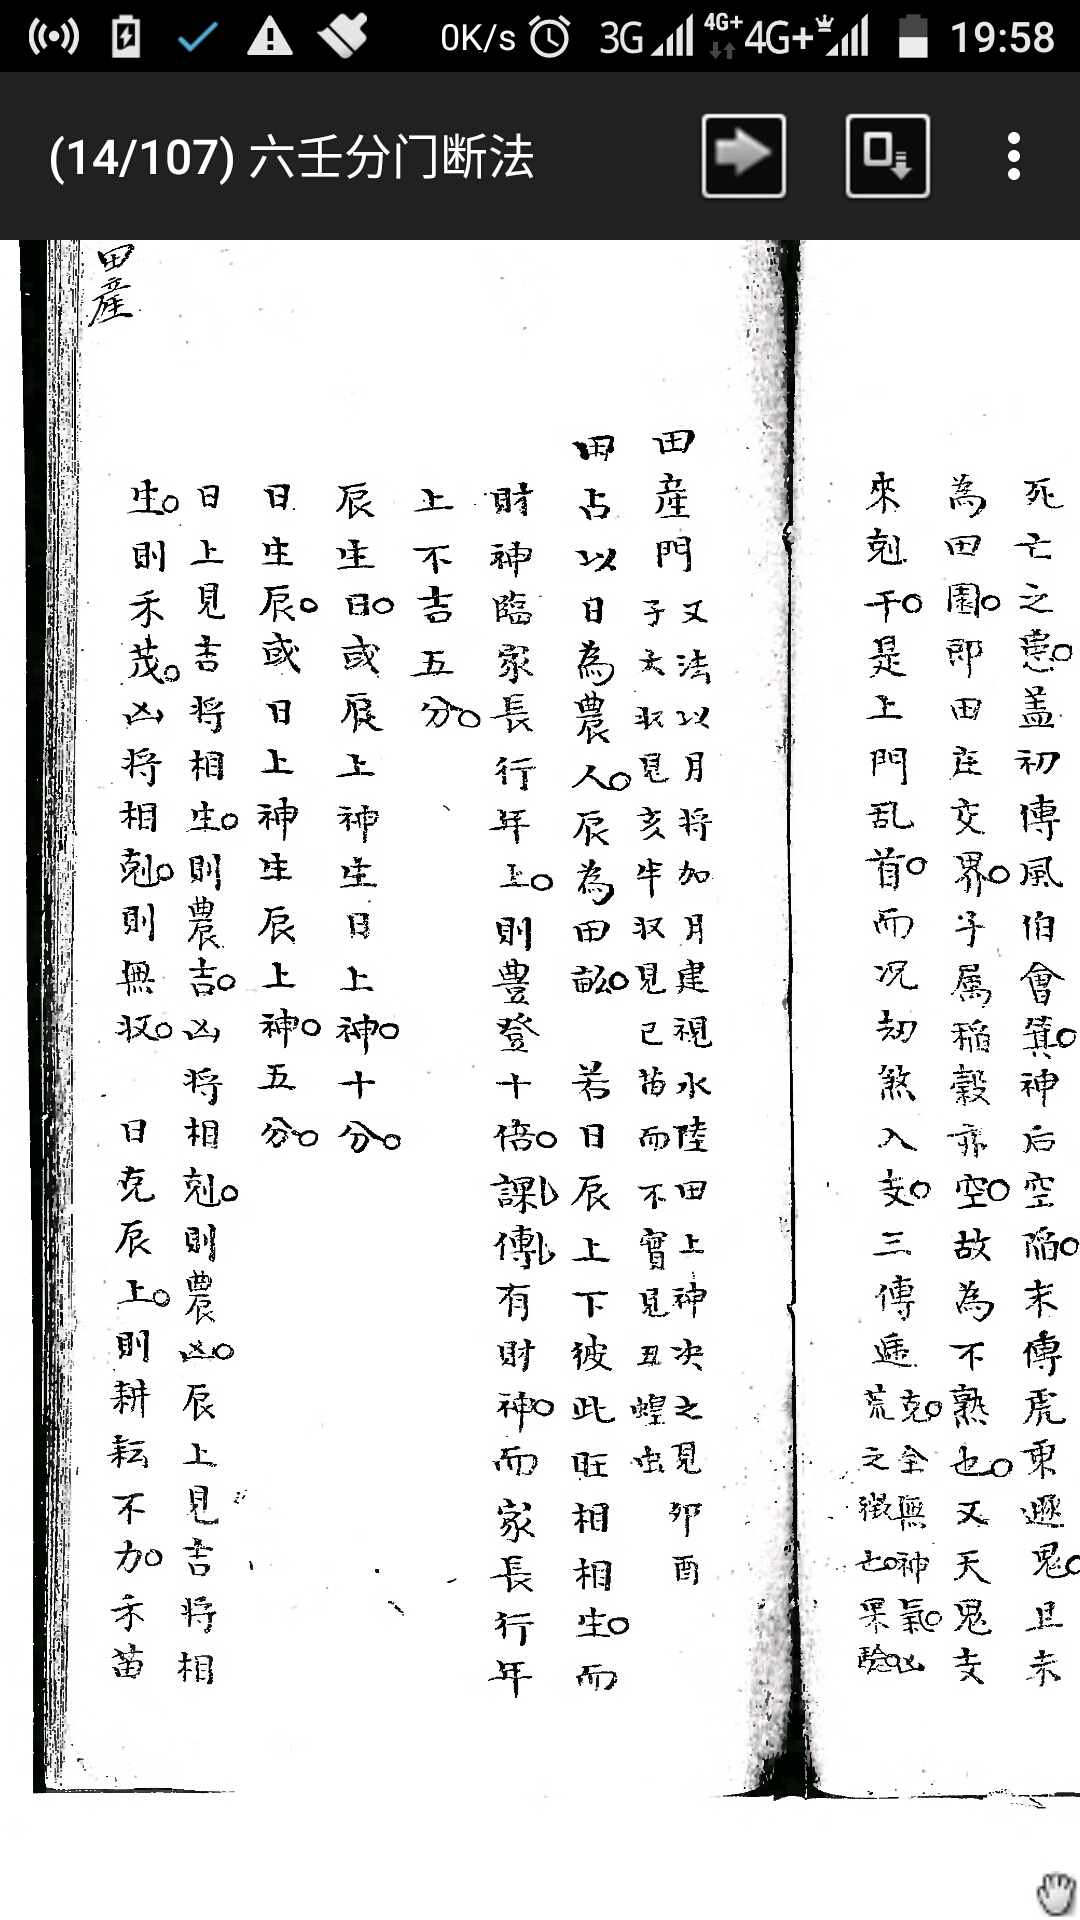 0K/s 3G 4G+ 4G+ 19:58
(14/107) 六壬分门断法
死亡之患盖初傳風伯會箕神后空陷末傳虎乘遯鬼且未
為田園即田庄交界子属稻穀亦空故為不熟也又天鬼支
來剋干是上門乱首而况劫煞入支三傳遞
克全無神氣凶
荒之徵也果驗
田産門
又法以月将加月建視水陸田上神决之見卯酉
子太収見亥半収見巳苗而不實見丑蝗出
田占以日為農人辰為田畝 若日辰上下彼此旺相相生而
財神臨家長行年上則豊登十倍課傳有財神而家長行年
上不吉五分
辰生日或辰上神生日上神十分
日生辰或日上神生辰上神五分
日上見吉将相生則農吉凶将相剋則農凶辰上見吉将相
生則禾茂凶将相剋則無収 日克辰上則耕耘不力禾苗
田産